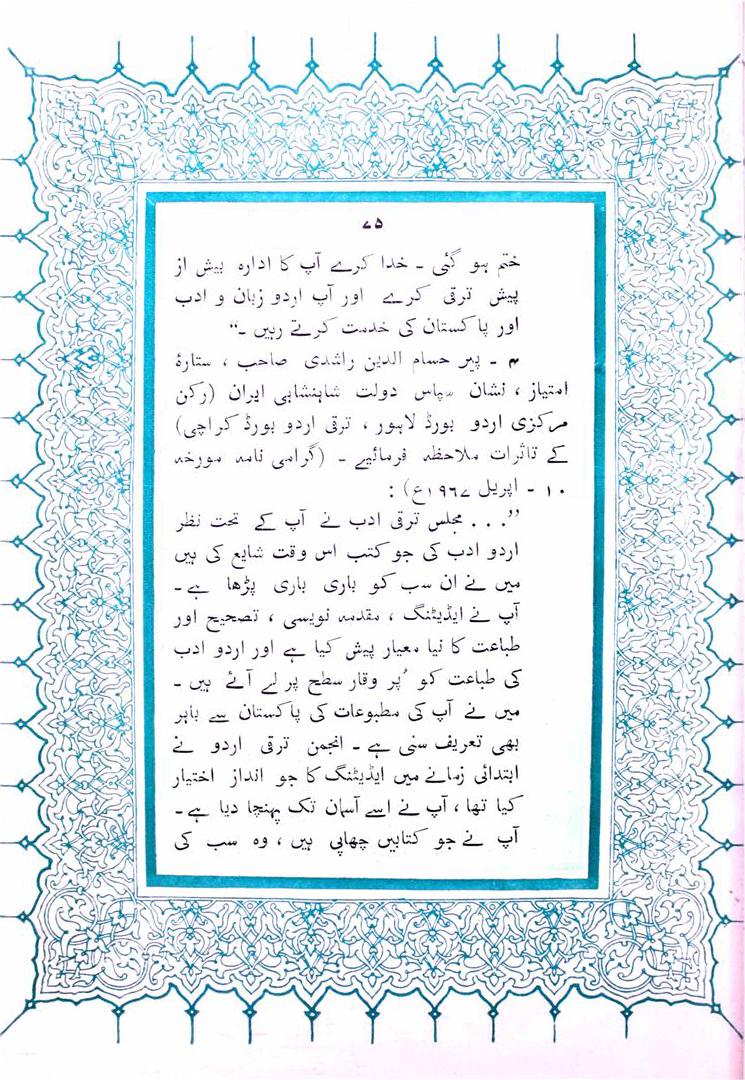 ۷۵
ختم ہو گئی ۔ خدا کرے آپ کا ادارہ بیش از
پیش ترقی کرے اور آپ اردو زبان و ادب
اور پاکستان کی خدمت کرتے رہیں ۔“
۴ ۔ پیر حسام الدین راشدی صاحب ، ستارۂ
امتیاز ، نشان سپاس دولت شاہنشاہی ایران (رکن
مرکزی اردو بورڈ لاہور ، ترقی اردو بورڈ کراچی)
کے تاثرات ملاحظہ فرمائیے ۔ (گرامی نامہ مورخہ
۱۰ ۔ اپریل ۱۹۶۷ع) :
”. . . مجلس ترقی ادب نے آپ کے تحت نظر
اردو ادب کی جو کتب اس وقت شایع کی ہیں
میں نے ان سب کو باری باری پڑھا ہے ۔
آپ نے ایڈیٹنگ ، مقدمہ نویسی ، تصحیح اور
طباعت کا نیا معیار پیش کیا ہے اور اردو ادب
کی طباعت کو ُپر وقار سطح پر لے آئے ہیں ۔
میں نے آپ کی مطبوعات کی پاکستان سے باہر
بھی تعریف سنی ہے ۔ انجمن ترقی اردو نے
ابتدائی زمانے میں ایڈیٹنگ کا جو انداز اختیار
کیا تھا ، آپ نے اسے آسمان تک پہنچا دیا ہے ۔
آپ نے جو کتابیں چھاپی ہیں ، وہ سب کی